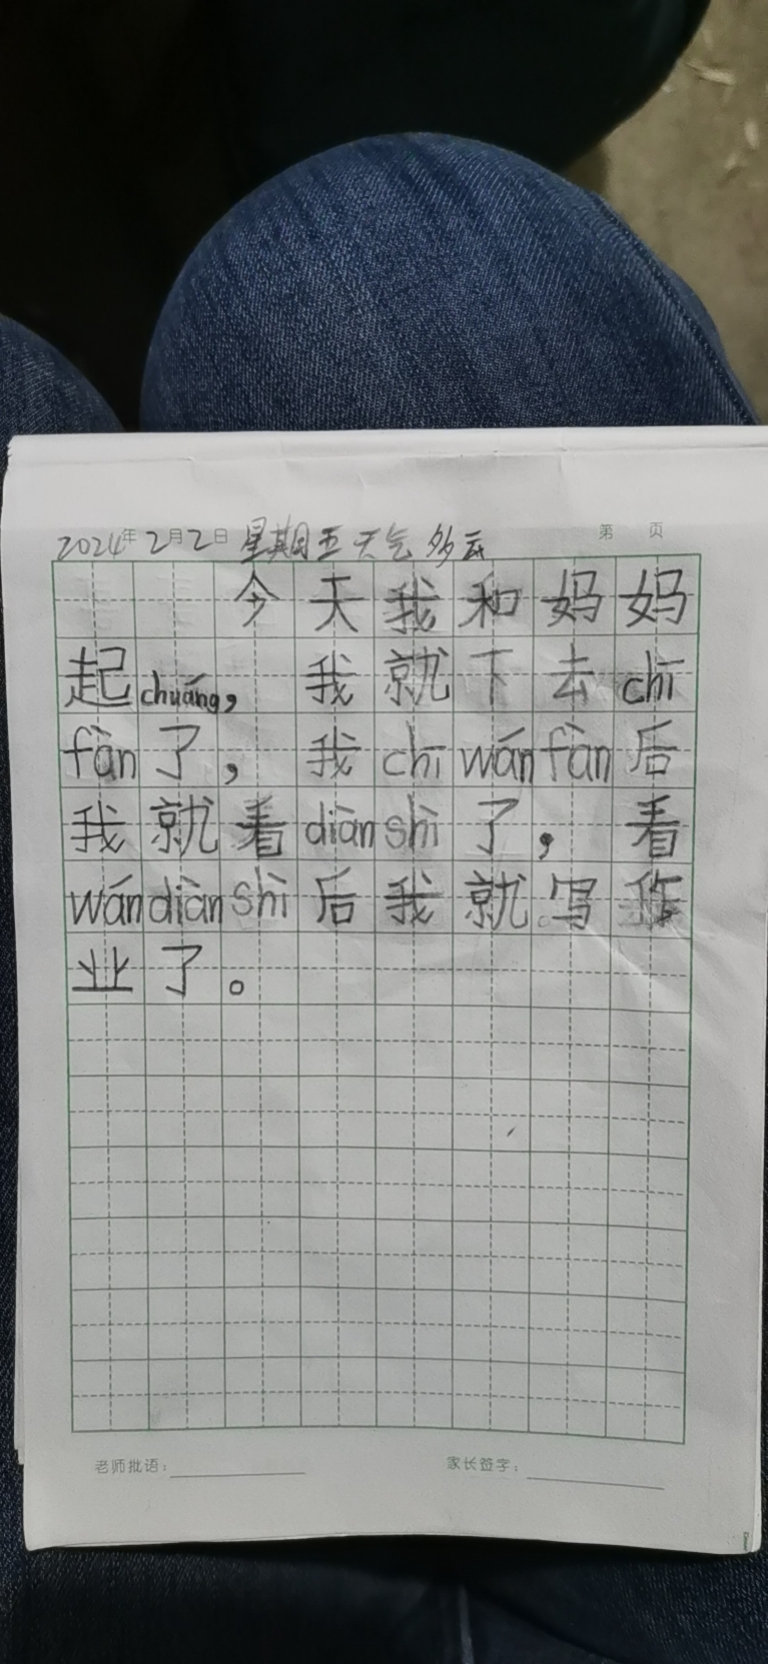 2024年2月2日 星期五 天气 多云 第 页
今天我和妈妈
起chuáng，我就下去chī
fàn了，我chī wán fàn后
我就看diàn shì了，看
wán diàn shì后我就写作
业了。
老师批语： 家长签字：